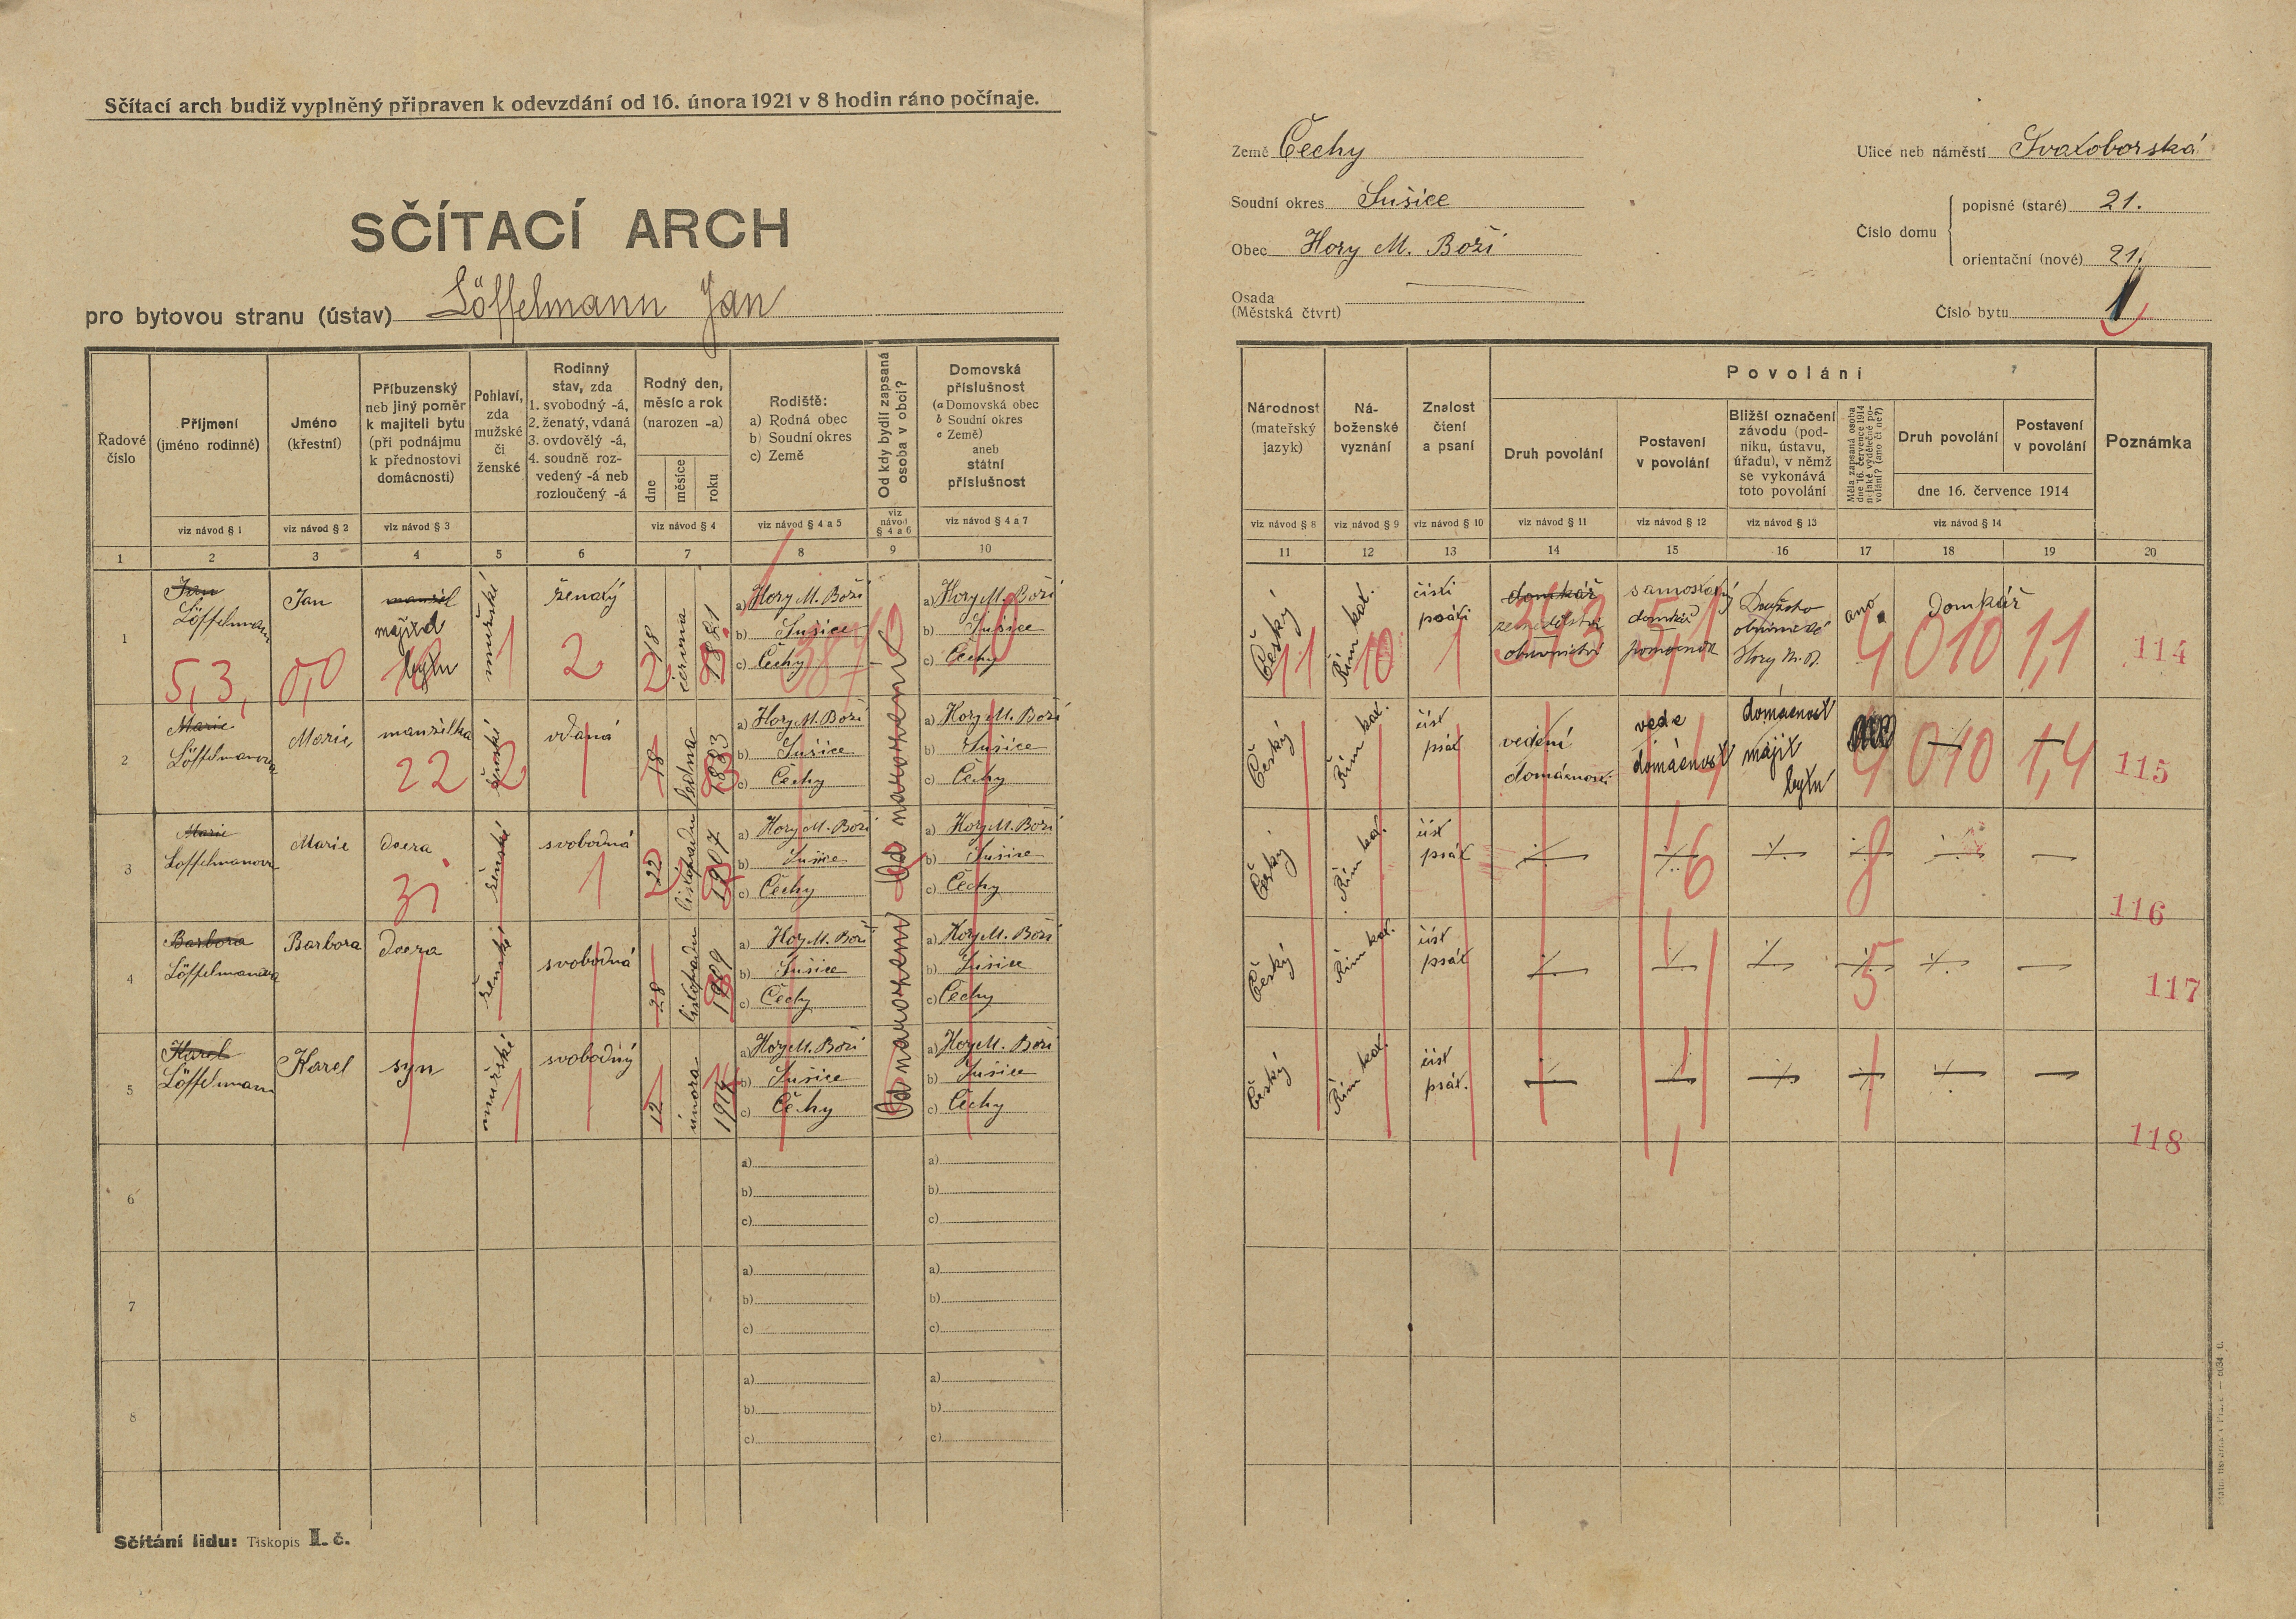 Sčítací arch budiž vyplněný připraven k odevzdání od 16. února 1921 v 8 hodin ráno počínaje.
SČÍTACÍ ARCH
pro bytovou stranu (ústav) Löffelmann Jan
Země Čechy
Soudní okres Sušice
Obec Hory M. Boží
Osada
(Městská čtvrt)
Ulice neb náměstí Svatoborská
Číslo domu
popisné (staré) 21.
orientační (nové) 21.
Číslo bytu 1
Řadové číslo
Příjmení (jméno rodinné)
Jméno (křestní)
Příbuzenský neb jiný poměr k majiteli bytu (při podnájmu k přednostovi domácnosti)
Pohlaví, zda mužské či ženské
Rodinný stav, zda 1. svobodný -á, 2. ženatý, vdaná 3. ovdovělý -á, 4. soudně rozvedený -á neb rozloučený -á
Rodný den, měsíc a rok (narozen -a)
dne měsíce roku
Rodiště: a) Rodná obec b) Soudní okres c) Země
Od kdy bydlí zapsaná osoba v obci?
Domovská příslušnost (a Domovská obec b Soudní okres c Země) aneb státní příslušnost
Národnost (mateřský jazyk)
Náboženské vyznání
Znalost čtení a psaní
Povolání
Druh povolání
Postavení v povolání
Bližší označení závodu (podniku, ústavu, úřadu), v němž se vykonává toto povolání
Měla zapsaná osoba dne 16. července 1914 nějaké výdělečné povolání? (ano či ne?)
Druh povolání
Postavení v povolání
dne 16. července 1914
Poznámka
viz návod § 1 viz návod § 2 viz návod § 3 viz návod § 4 viz návod § 4 a 5 viz návod § 4 a 6 viz návod § 4 a 7 viz návod § 8 viz návod § 9 viz návod § 10 viz návod § 11 viz návod § 12 viz návod § 13 viz návod § 14
1 2 3 4 5 6 7 8 9 10 11 12 13 14 15 16 17 18 19 20
1 Jan Löffelmann Jan manžel majitel bytu mužské ženatý 18 června 1881
a) Hory M. Boží b) Sušice c) Čechy
a) Hory M. Boží b) Sušice c) Čechy
Český Řím kat. čísti psáti domkář zemědělství obuvnictví samostatný domkář Hory M. B. ano domkář
5,3, 0,0 1 2 387 10 11 10 1 4 010 1,1 114
2 Marie Löffelmanova Marie manželka ženské vdaná 18 ledna 1883
a) Hory M. Boží b) Sušice c) Čechy
Od narození
a) Hory M. Boží b) Sušice c) Čechy
Český Řím kat. číst psát vedení domácnosti vede domácnost domácnost majit bytu
22 2 4 4 010 1,4 115
3 Marie Löffelmanova Marie dcera ženské svobodná 22 listopadu 1907
a) Hory M. Boží b) Sušice c) Čechy
a) Hory M. Boží b) Sušice c) Čechy
Český Řím kat. číst psát
1 6 8 116
4 Barbora Löffelmanova Barbora dcera ženské svobodná 28 listopadu 1909
a) Hory M. Boží b) Sušice c) Čechy
Od narození
a) Hory M. Boží b) Sušice c) Čechy
Český Řím kat. číst psát
5 117
5 Karel Löffelmann Karel syn mužské svobodný 12 února
a) Hory M. Boží b) Sušice c) Čechy
a) Hory M. Boží b) Sušice c) Čechy
Český Řím kat. číst psát.
1 118
6 a) b) c) a) b) c)
7 a) b) c) a) b) c)
8 a) b) c) a) b) c)
Sčítání lidu: Tiskopis I. č.